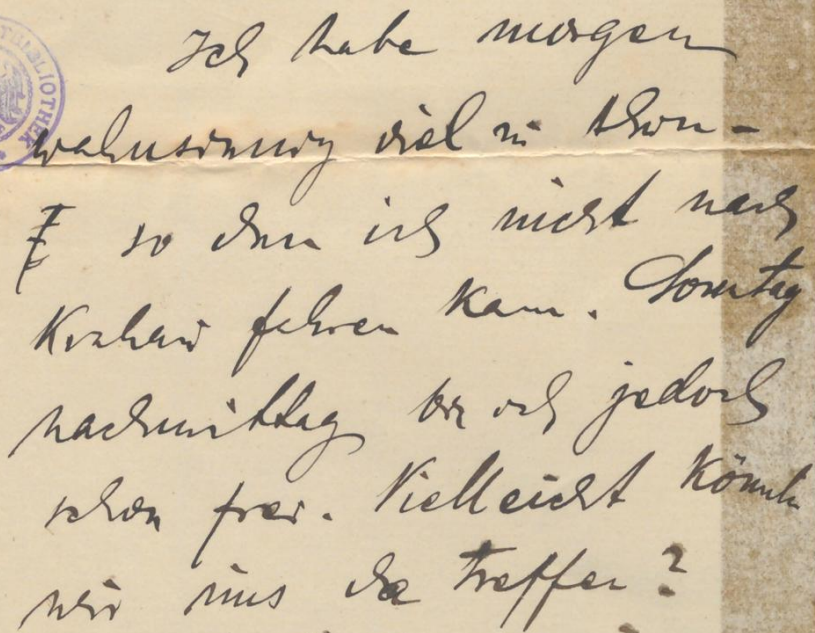 Ich habe morgen
wahnsinnig viel zu thun –
so dass ich nicht nach
Krakau fahren kann. Sonntag
nachmittag bin ich jedoch
schon frei. Vielleicht könnten
wir uns da treffen?
BIBLIOTHEK